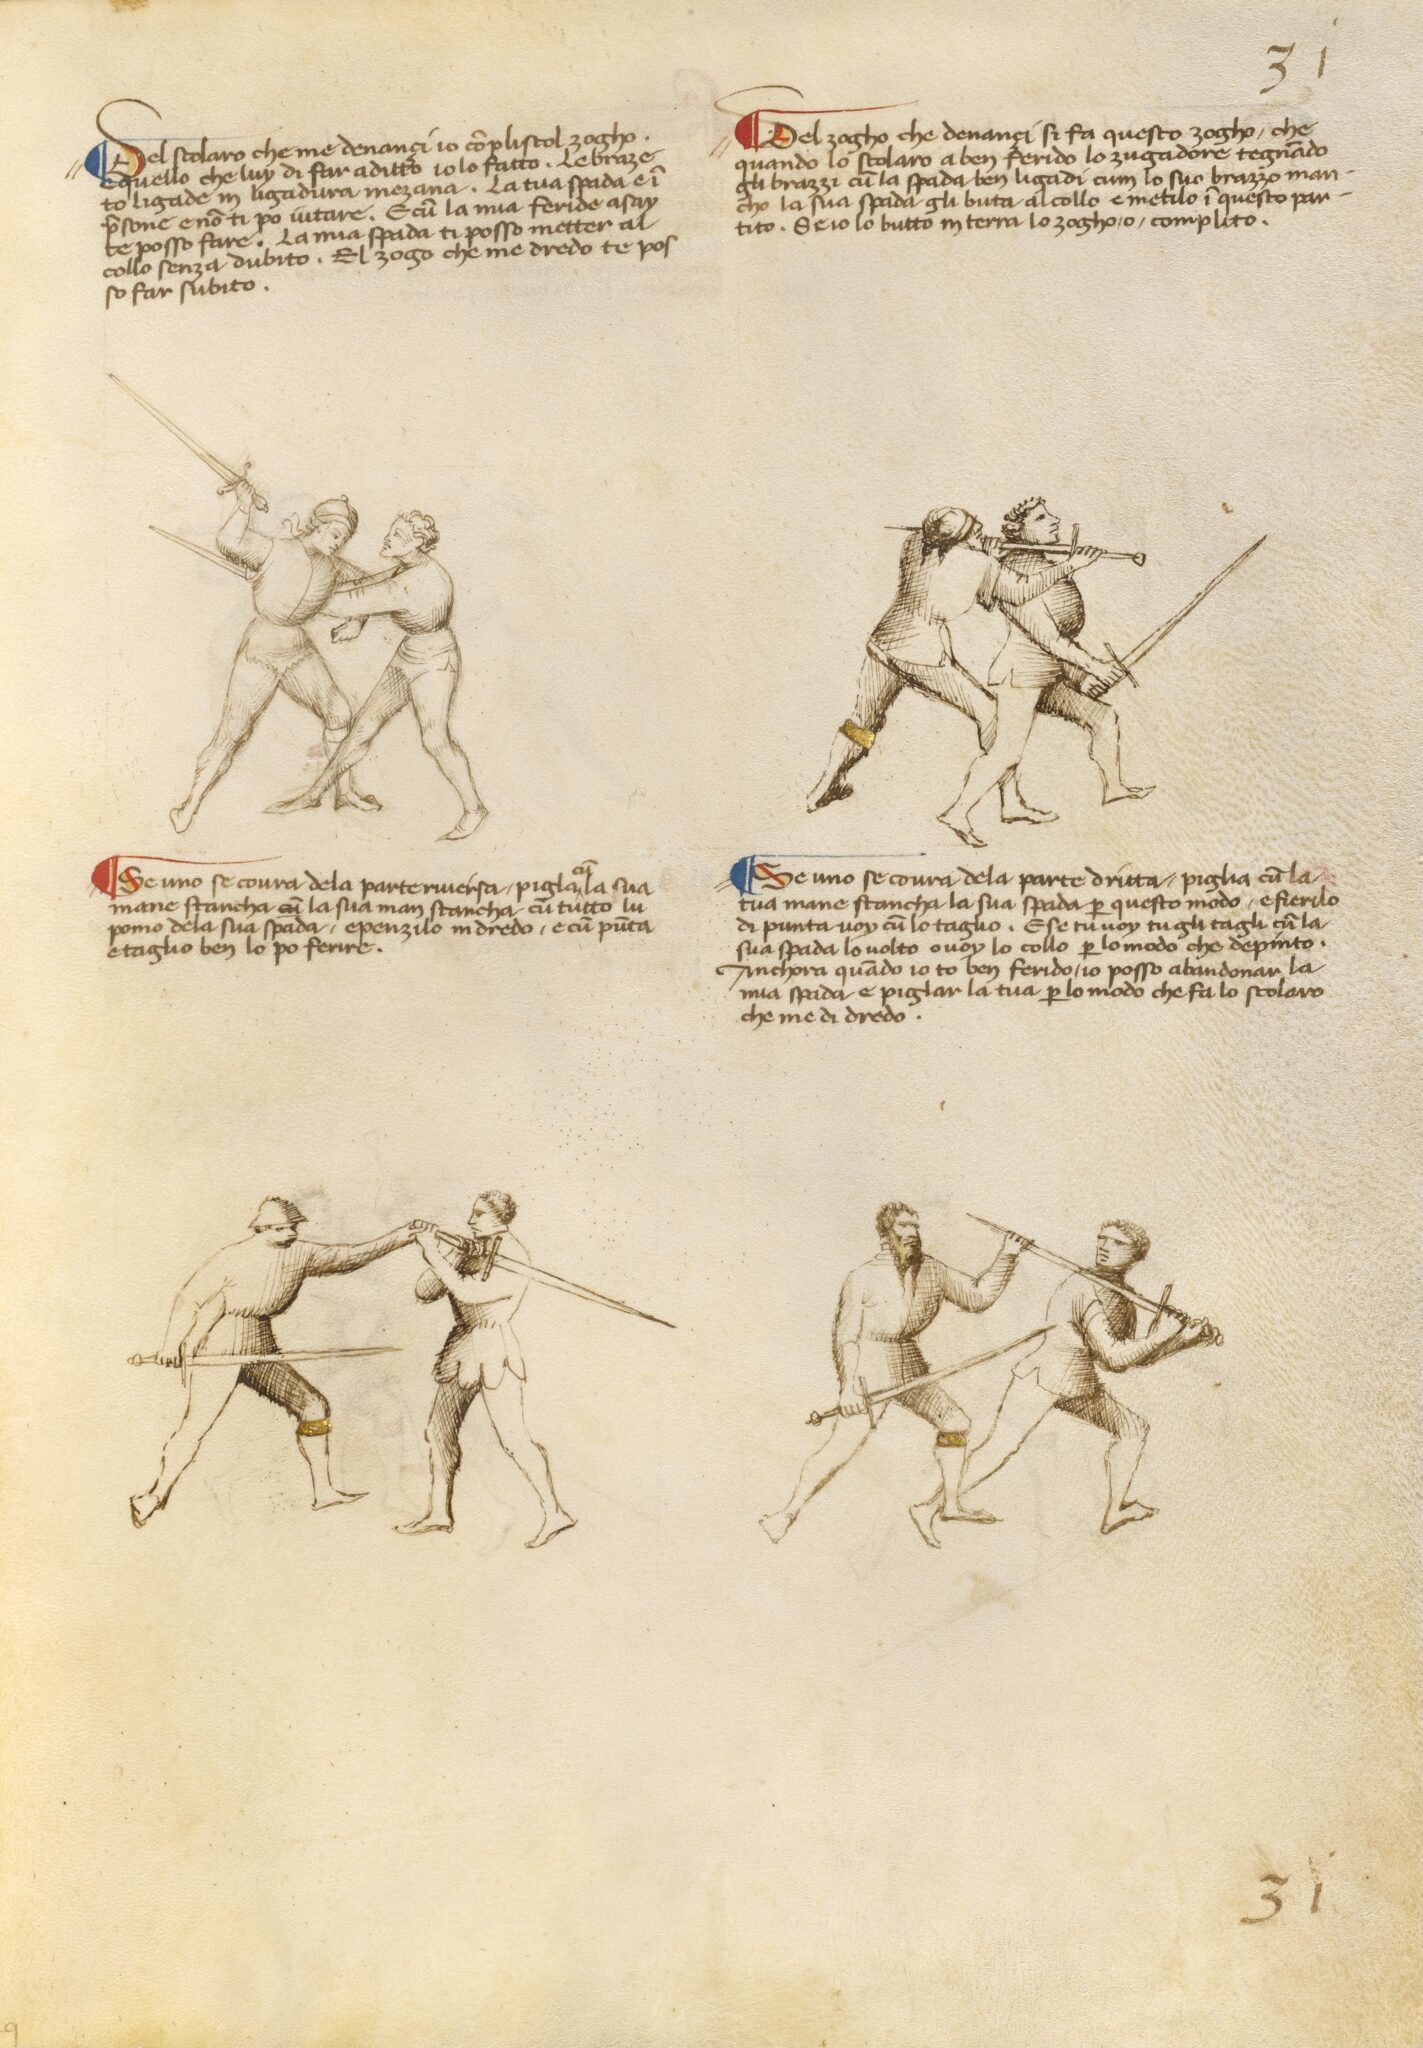 31
Del scolaro che me denançi io cõplischol zogho.
e quello che luy di far a ditto io lo fatto. Le braze
to ligade in ligadura mezana. La tua spada e ĩ
p̃sone e nõ ti po iutare. E cũ la mia feride asay
te posso fare. La mia spada ti posso metter al
collo senza dubito. El zogo che me dredo te pos
so far subito.
Del zogho che denançi si fa questo zogho, che
quando lo scolaro a ben ferido lo zugadore tegnãdo
gli brazzi cũ la spada ben ligadi cum lo suo brazzo man-
cho la sua spada gli buta al collo e metilo ĩ questo par-
tito. Se io lo butto in terra lo zogho, o, complito.
Se uno se covra dela parte riversa, pigla cũ la sua
mane stancha cũ la sua man stancha cũ tutto lu
pomo dela sua spada, e penzilo in dredo, e cũ pũta
e taglio ben lo po ferire.
Se uno se covra dela parte dritta, piglia cũ la
tua mane stancha la sua spada p questo modo, e fierilo
di punta voy cũ lo taglio. E se tu voy tu gli tagli cũ la
sua spada lo volto o voy lo collo p lo modo che depinto.
Anchora quãdo io to ben ferido, io posso abandonar la
mia spada e piglar la tua p lo modo che fa lo scolaro
che me di dredo.
31